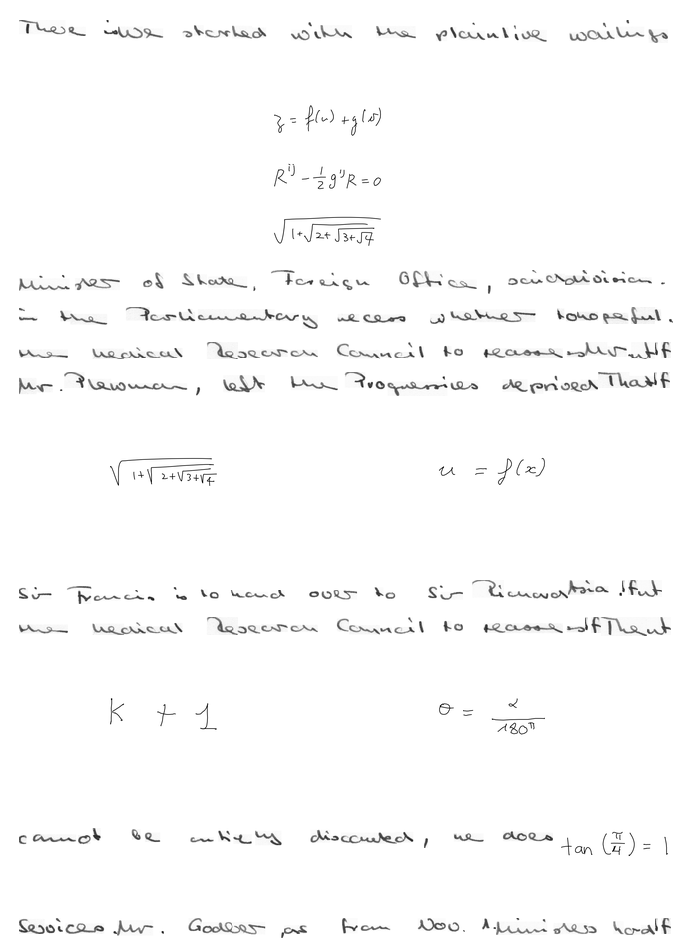 There we started with the plaintive wailings
z = f(u) + g(v)
R^{ij} - \frac{1}{2} g^{ij} R = 0
\sqrt{1+\sqrt{2+\sqrt{3+\sqrt{4}}}}
Minister of State, Foreign Office, said
in the Parliamentary recess whether to
the Medical Research Council to reassess
Mr. Plewman, left the Progressives deprived That
\sqrt{1+\sqrt{2+\sqrt{3+\sqrt{4}}}} u = f(x)
Sir Francis is to hand over to Sir Richard
the Medical Research Council to reassess
K + 1 θ = \frac{α}{180^π}
cannot be entirely discounted, we does tan (\frac{π}{4}) = 1
Services Mr. Godber as from Nov. 1. Ministers